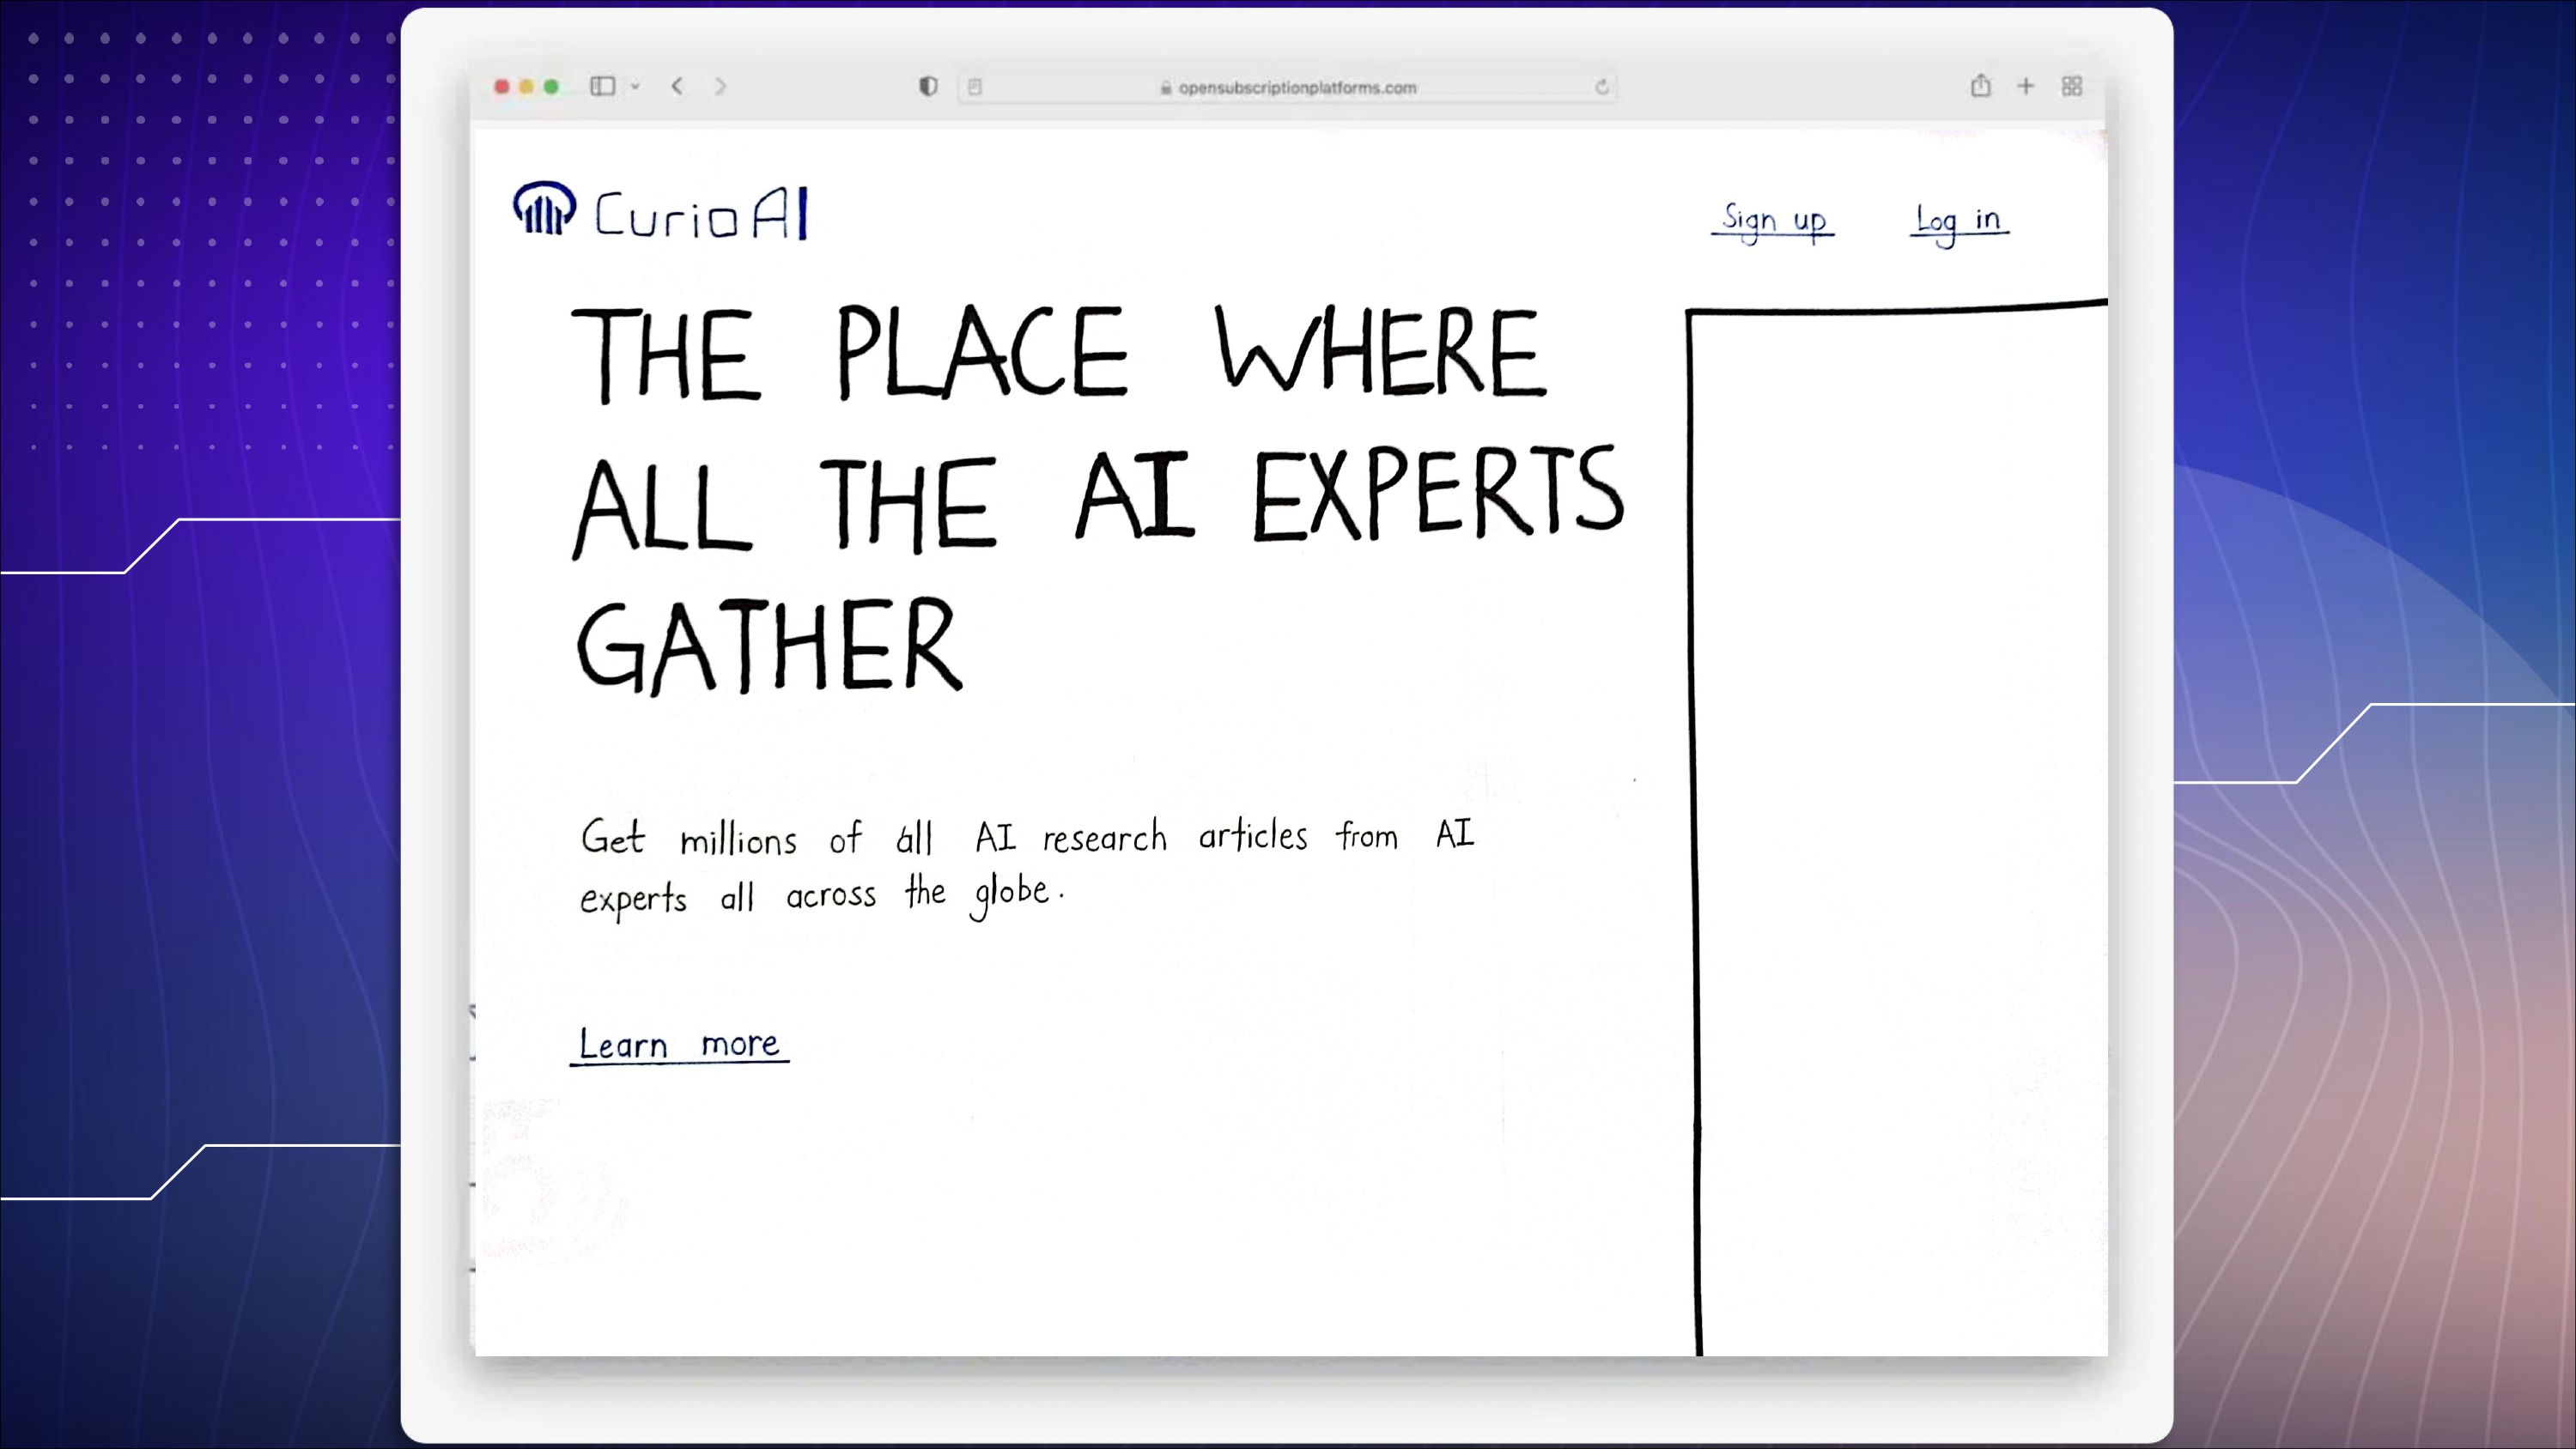 opensubscriptionplatforms.com
CurioAI
Sign up
Log in
THE PLACE WHERE
ALL THE AI EXPERTS
GATHER
Get millions of all AI research articles from AI
experts all across the globe.
Learn more